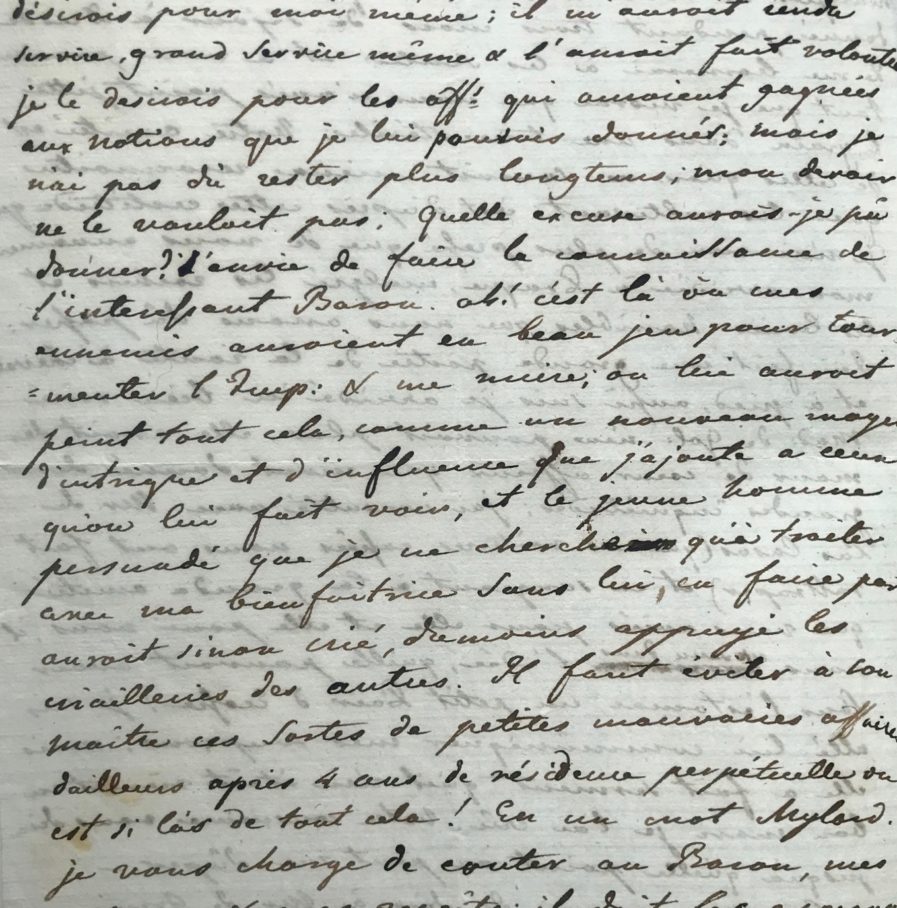 désirois pour moi même; il m'auroit rendu
service, grand service même & l'auroit fait
je le desirois pour les aff.s qui auroient gagnées
aux notions que je lui pouvois donner; mais je
n'ai pas dû rester plus longtems; mon devoir
ne le vouloit pas; quelle excuse aurois-je pû
donner? l'envie de faire la connoissance de
l'interessant Baron. ah! c'est là où mes
ennemis auroient eu beau jeu pour tour
=menter l'Imp: & me nuire; on lui auroit
peint tout cela, comme un nouveau moyen
d'intrigue et d'influence que j'ajoute a ceux
qu'on lui fait voir, et le jeune homme
persuadé que je ne cherche qu'à traiter
avec ma bienfaitrice sans lui, en faire par
auroit sinon crié, dumoins appuyé les
criailleries des autres. Il faut éviter à son
maitre ces sortes de petites mauvaises affaires
dailleurs après 4 ans de résidence perpétuelle on
est si làs de tout cela! En un mot Mylord.
je vous charge de conter au Baron, mes